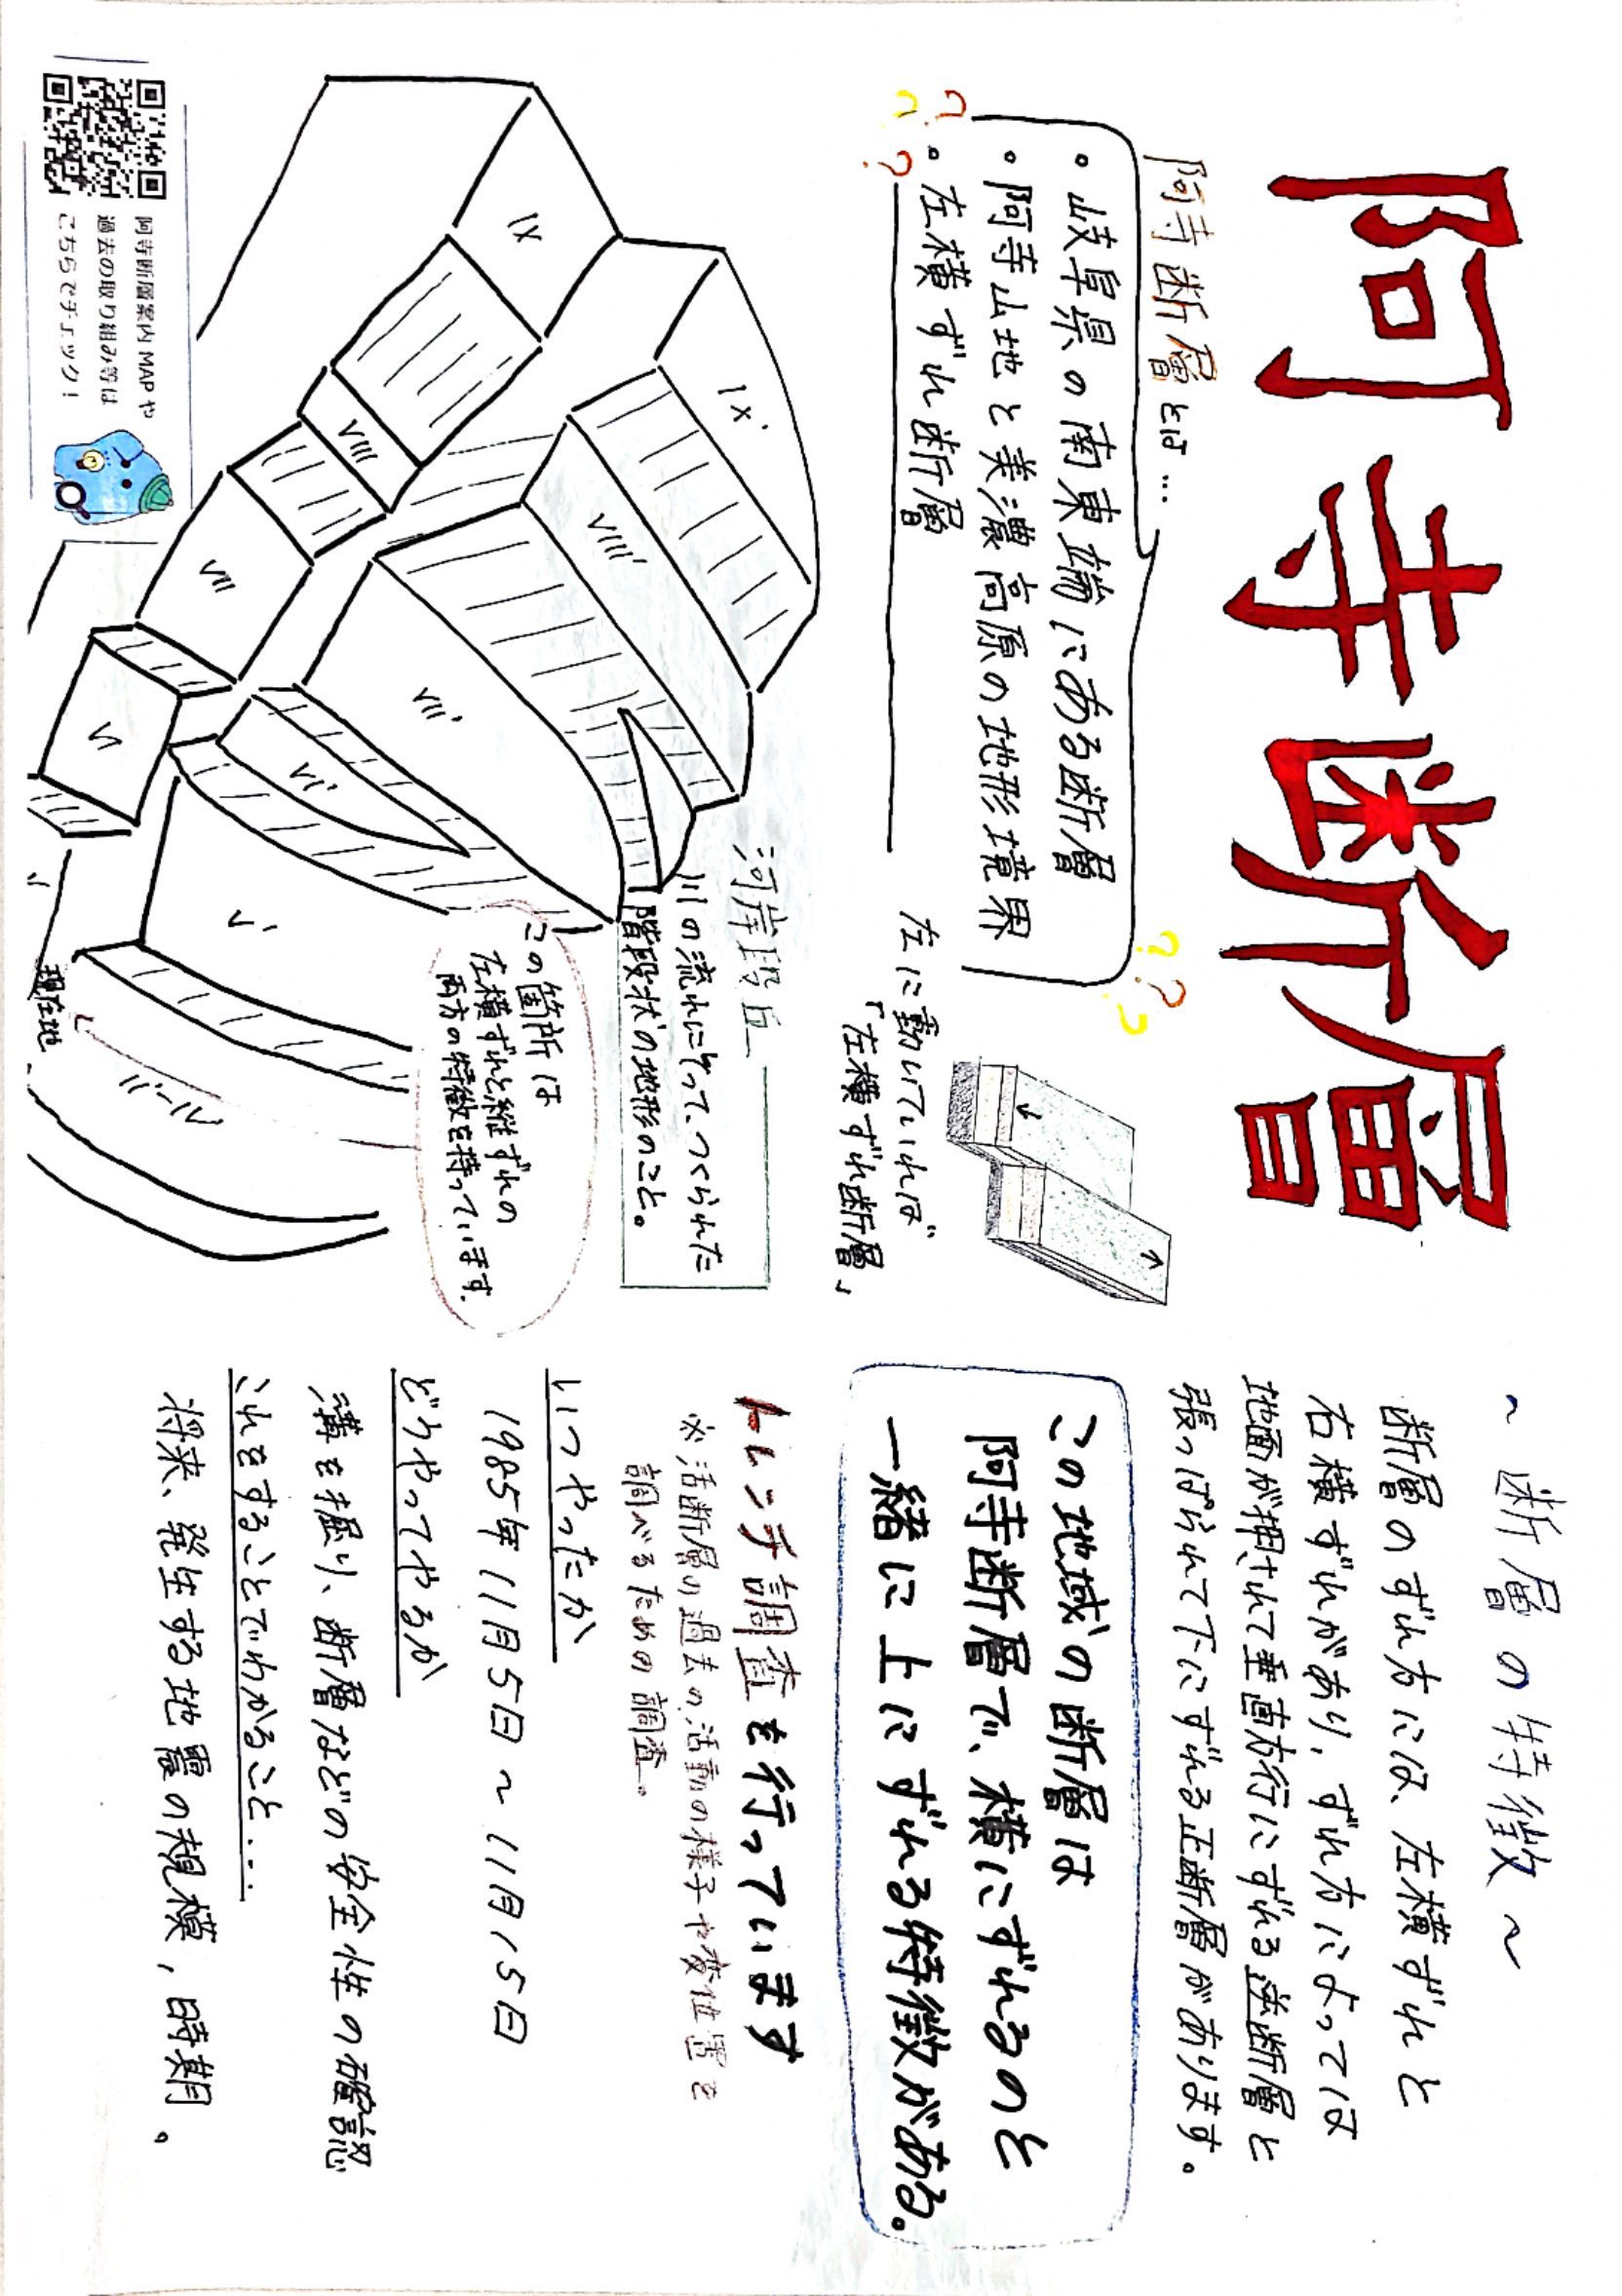 阿寺断層
阿寺断層とは…
・岐阜県の南東端にある断層
・阿寺山地と美濃高原の地形境界
・左横ずれ断層
左に動いていれば
「左横ずれ断層」
河岸段丘
川の流れによって、つくられた
階段状の地形のこと。
この箇所は
左横ずれと縦ずれの
両方の特徴を持っています。
IX
IX'
VIII
VIII'
VII
VII'
VI
VI'
V
V'
現在地
阿寺断層案内MAPや
過去の取り組み等は
こちらでチェック!
~断層の特徴~
断層のずれ方には、左横ずれと
右横ずれがあり、ずれ方によっては
地面が押されて垂直方行にずれる逆断層と
張っぱられて下にずれる正断層があります。
この地域の断層は
阿寺断層で、横にずれるのと
一緒に上にずれる特徴がある。
トレンチ調査を行っています
※活断層の過去の活動の様子や変位置を
調べるための調査。
いつやったか
1985年11月5日~11月15日
どうやってやるか
溝を掘り、断層などの安全性の確認
これをすることでわかること…
将来、発生する地震の規模,時期。